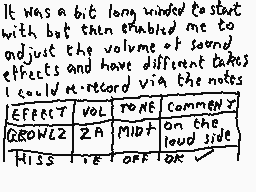 It was a bit long winded to start
with but then enabled me to
adjust the volume of sound
effects and have different takes
I could re-record via the notes
EFFECT VOL TONE COMMENT
GROWL2 2A MID+ on the
loud side
HISS 1E OFF OK ✓